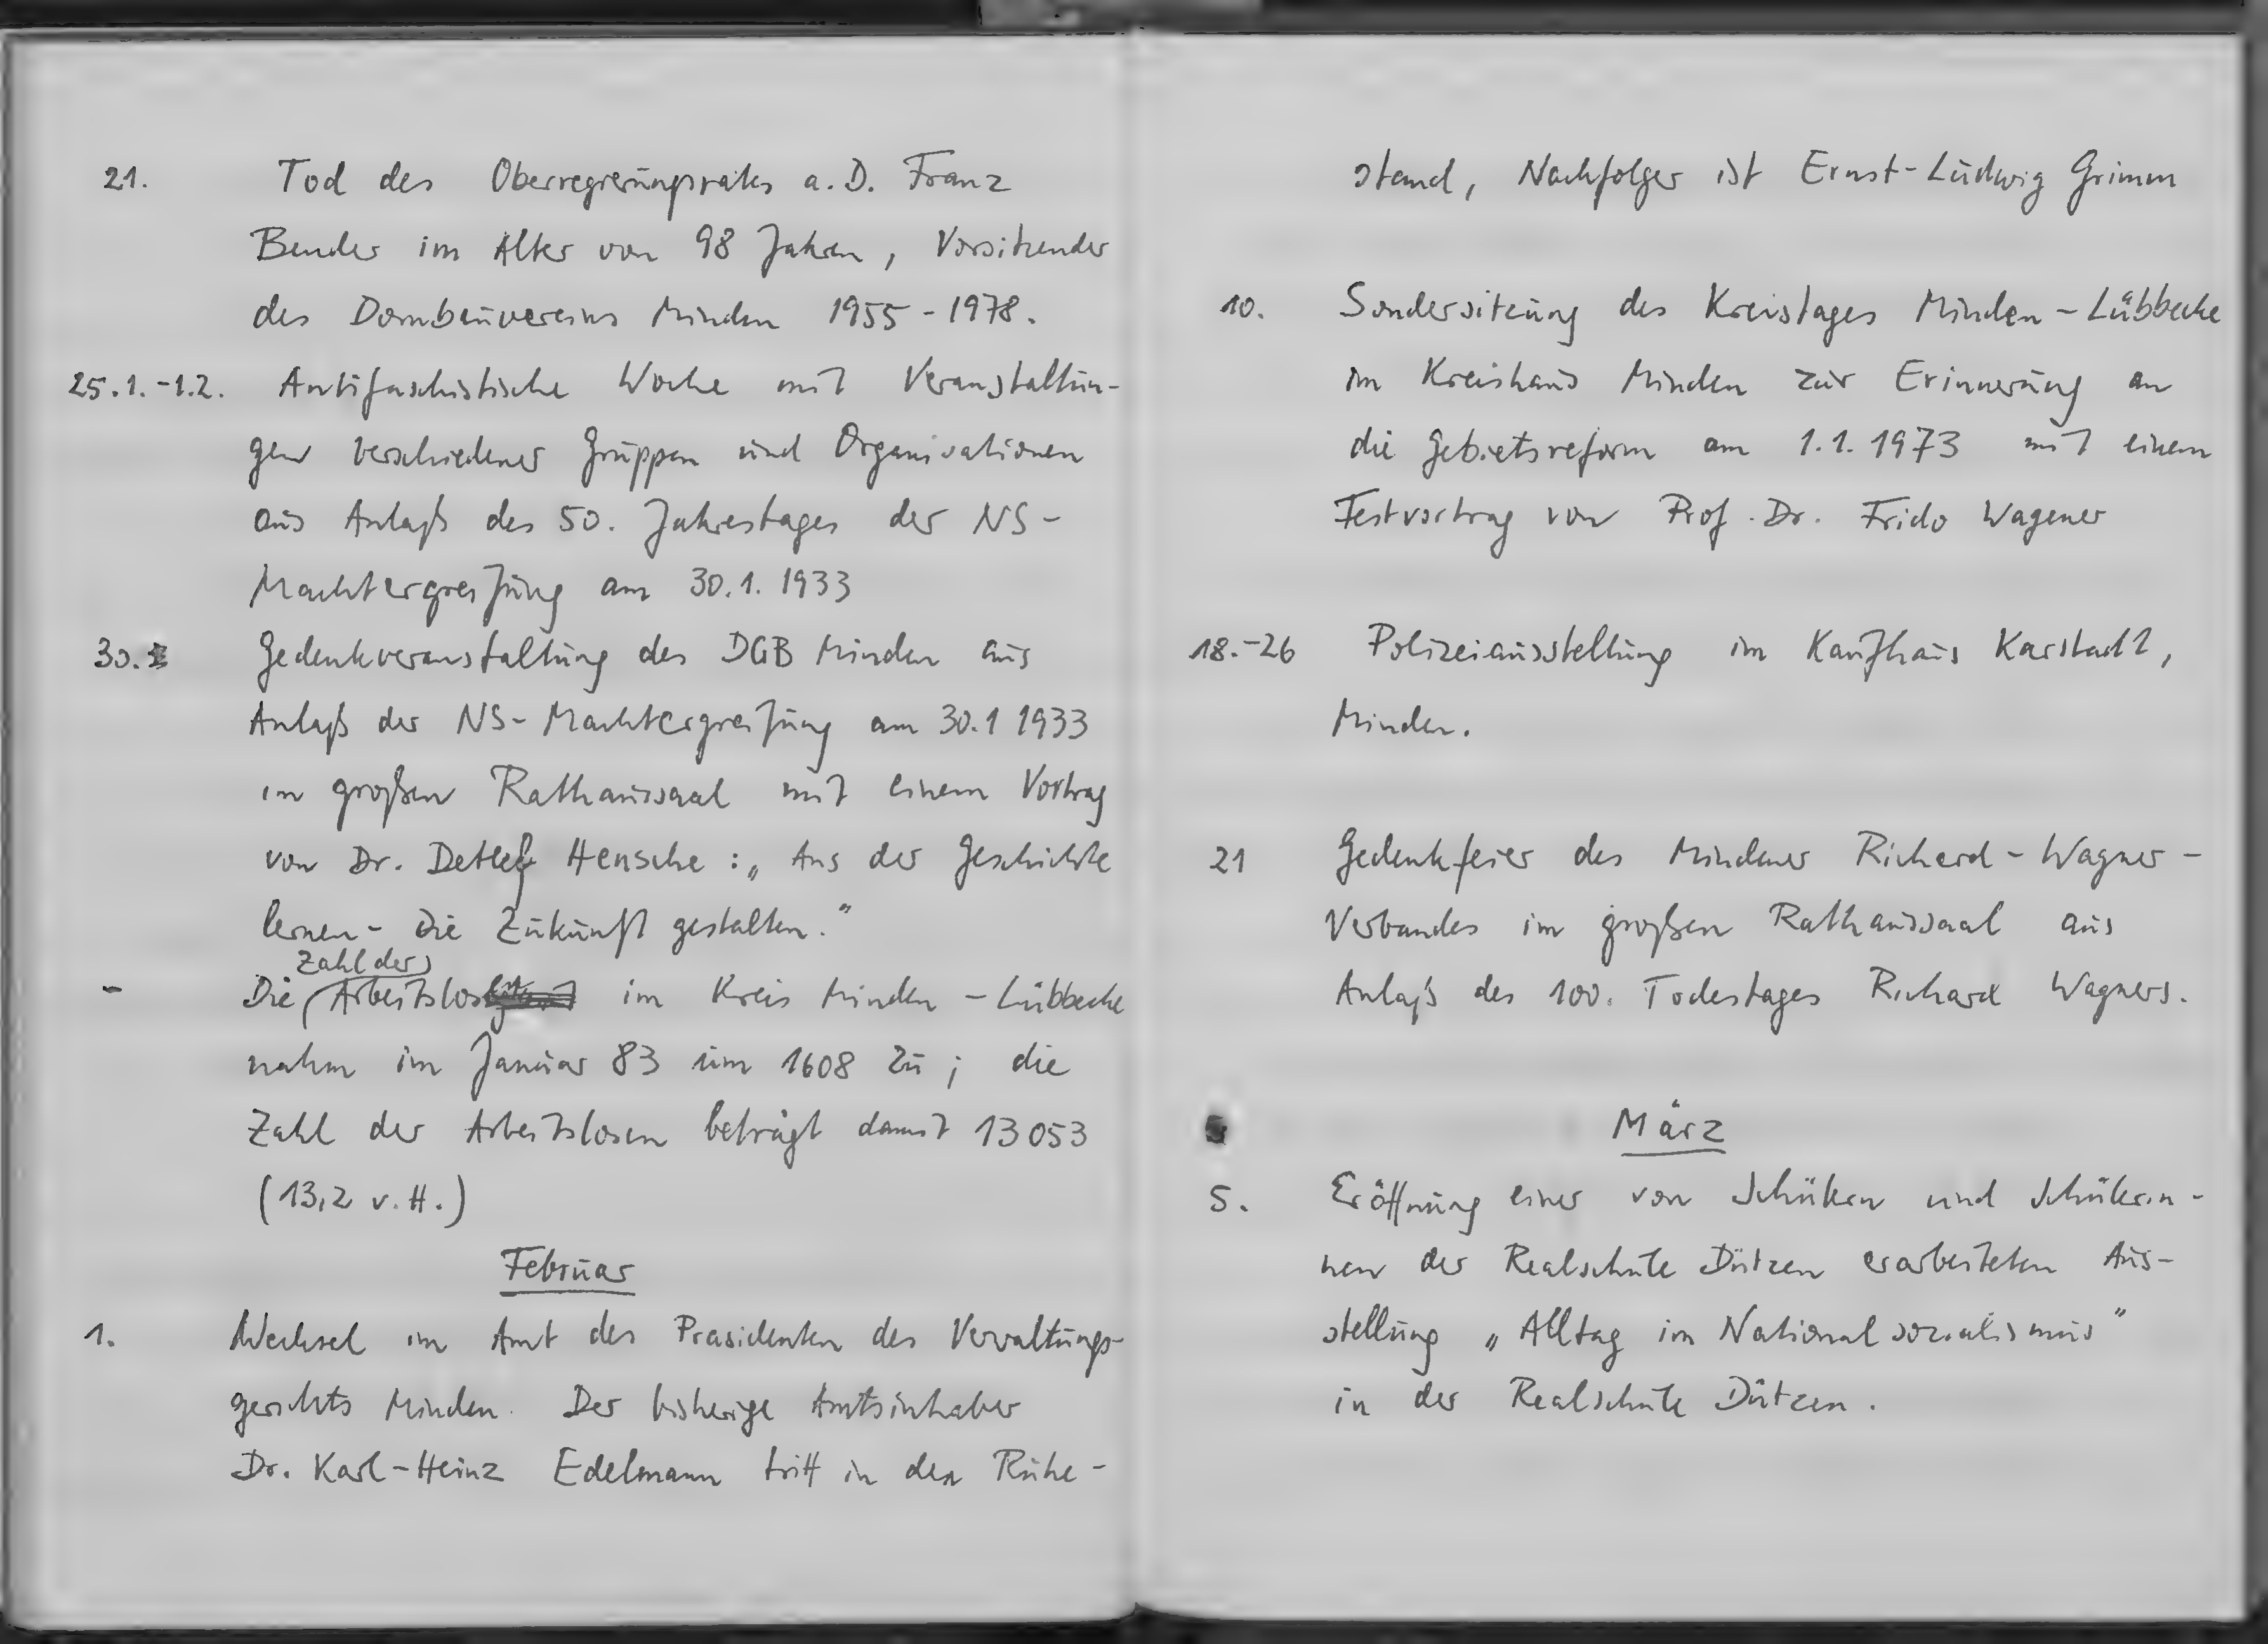 21. Tod des Oberregierungsrates a. D. Franz
Bender im Alter von 98 Jahren, Vorsitzender
des Dombauvereins Minden 1955-1978.
25.1.-1.2. Antifaschistische Woche mit Veranstaltun-
gen verschiedener Gruppen und Organisationen
aus Anlaß des 50. Jahrestages der NS-
Machtergreifung am 30.1.1933
30. Gedenkveranstaltung des DGB Minden aus
Anlaß der NS-Machtergreifung am 30.1 1933
im großen Rathaussaal mit einem Vortrag
von Dr. Detlef Hensche: „Aus der Geschichte
lernen - die Zukunft gestalten."
Zahl der
- Die Arbeitslos im Kreis Minden-Lübbecke
nahm im Januar 83 um 1608 zu; die
Zahl der Arbeitslosen beträgt damit 13053
(13,2 v.H.)
Februar
1. Wechsel im Amt des Präsidenten des Verwaltungs-
gerichts Minden. Der bisherige Amtsinhaber
Dr. Karl-Heinz Edelmann tritt in den Ruhe-
stand, Nachfolger ist Ernst-Ludwig Grimm
10. Sondersitzung des Kreistages Minden-Lübbecke
im Kreishaus Minden zur Erinnerung an
die Gebietsreform am 1.1.1973 mit einem
Festvortrag von Prof. Dr. Frido Wagener
18.-26 Polizeiausstellung im Kaufhaus Karstadt,
Minden.
21 Gedenkfeier des Mindener Richard-Wagner-
Verbandes im großen Rathaussaal aus
Anlaß des 100. Todestages Richard Wagners.
März
5. Eröffnung einer von Schülern und Schülerin-
nen der Realschule Dützen erarbeiteten Aus-
stellung „Alltag im Nationalsozialismus"
in der Realschule Dützen.